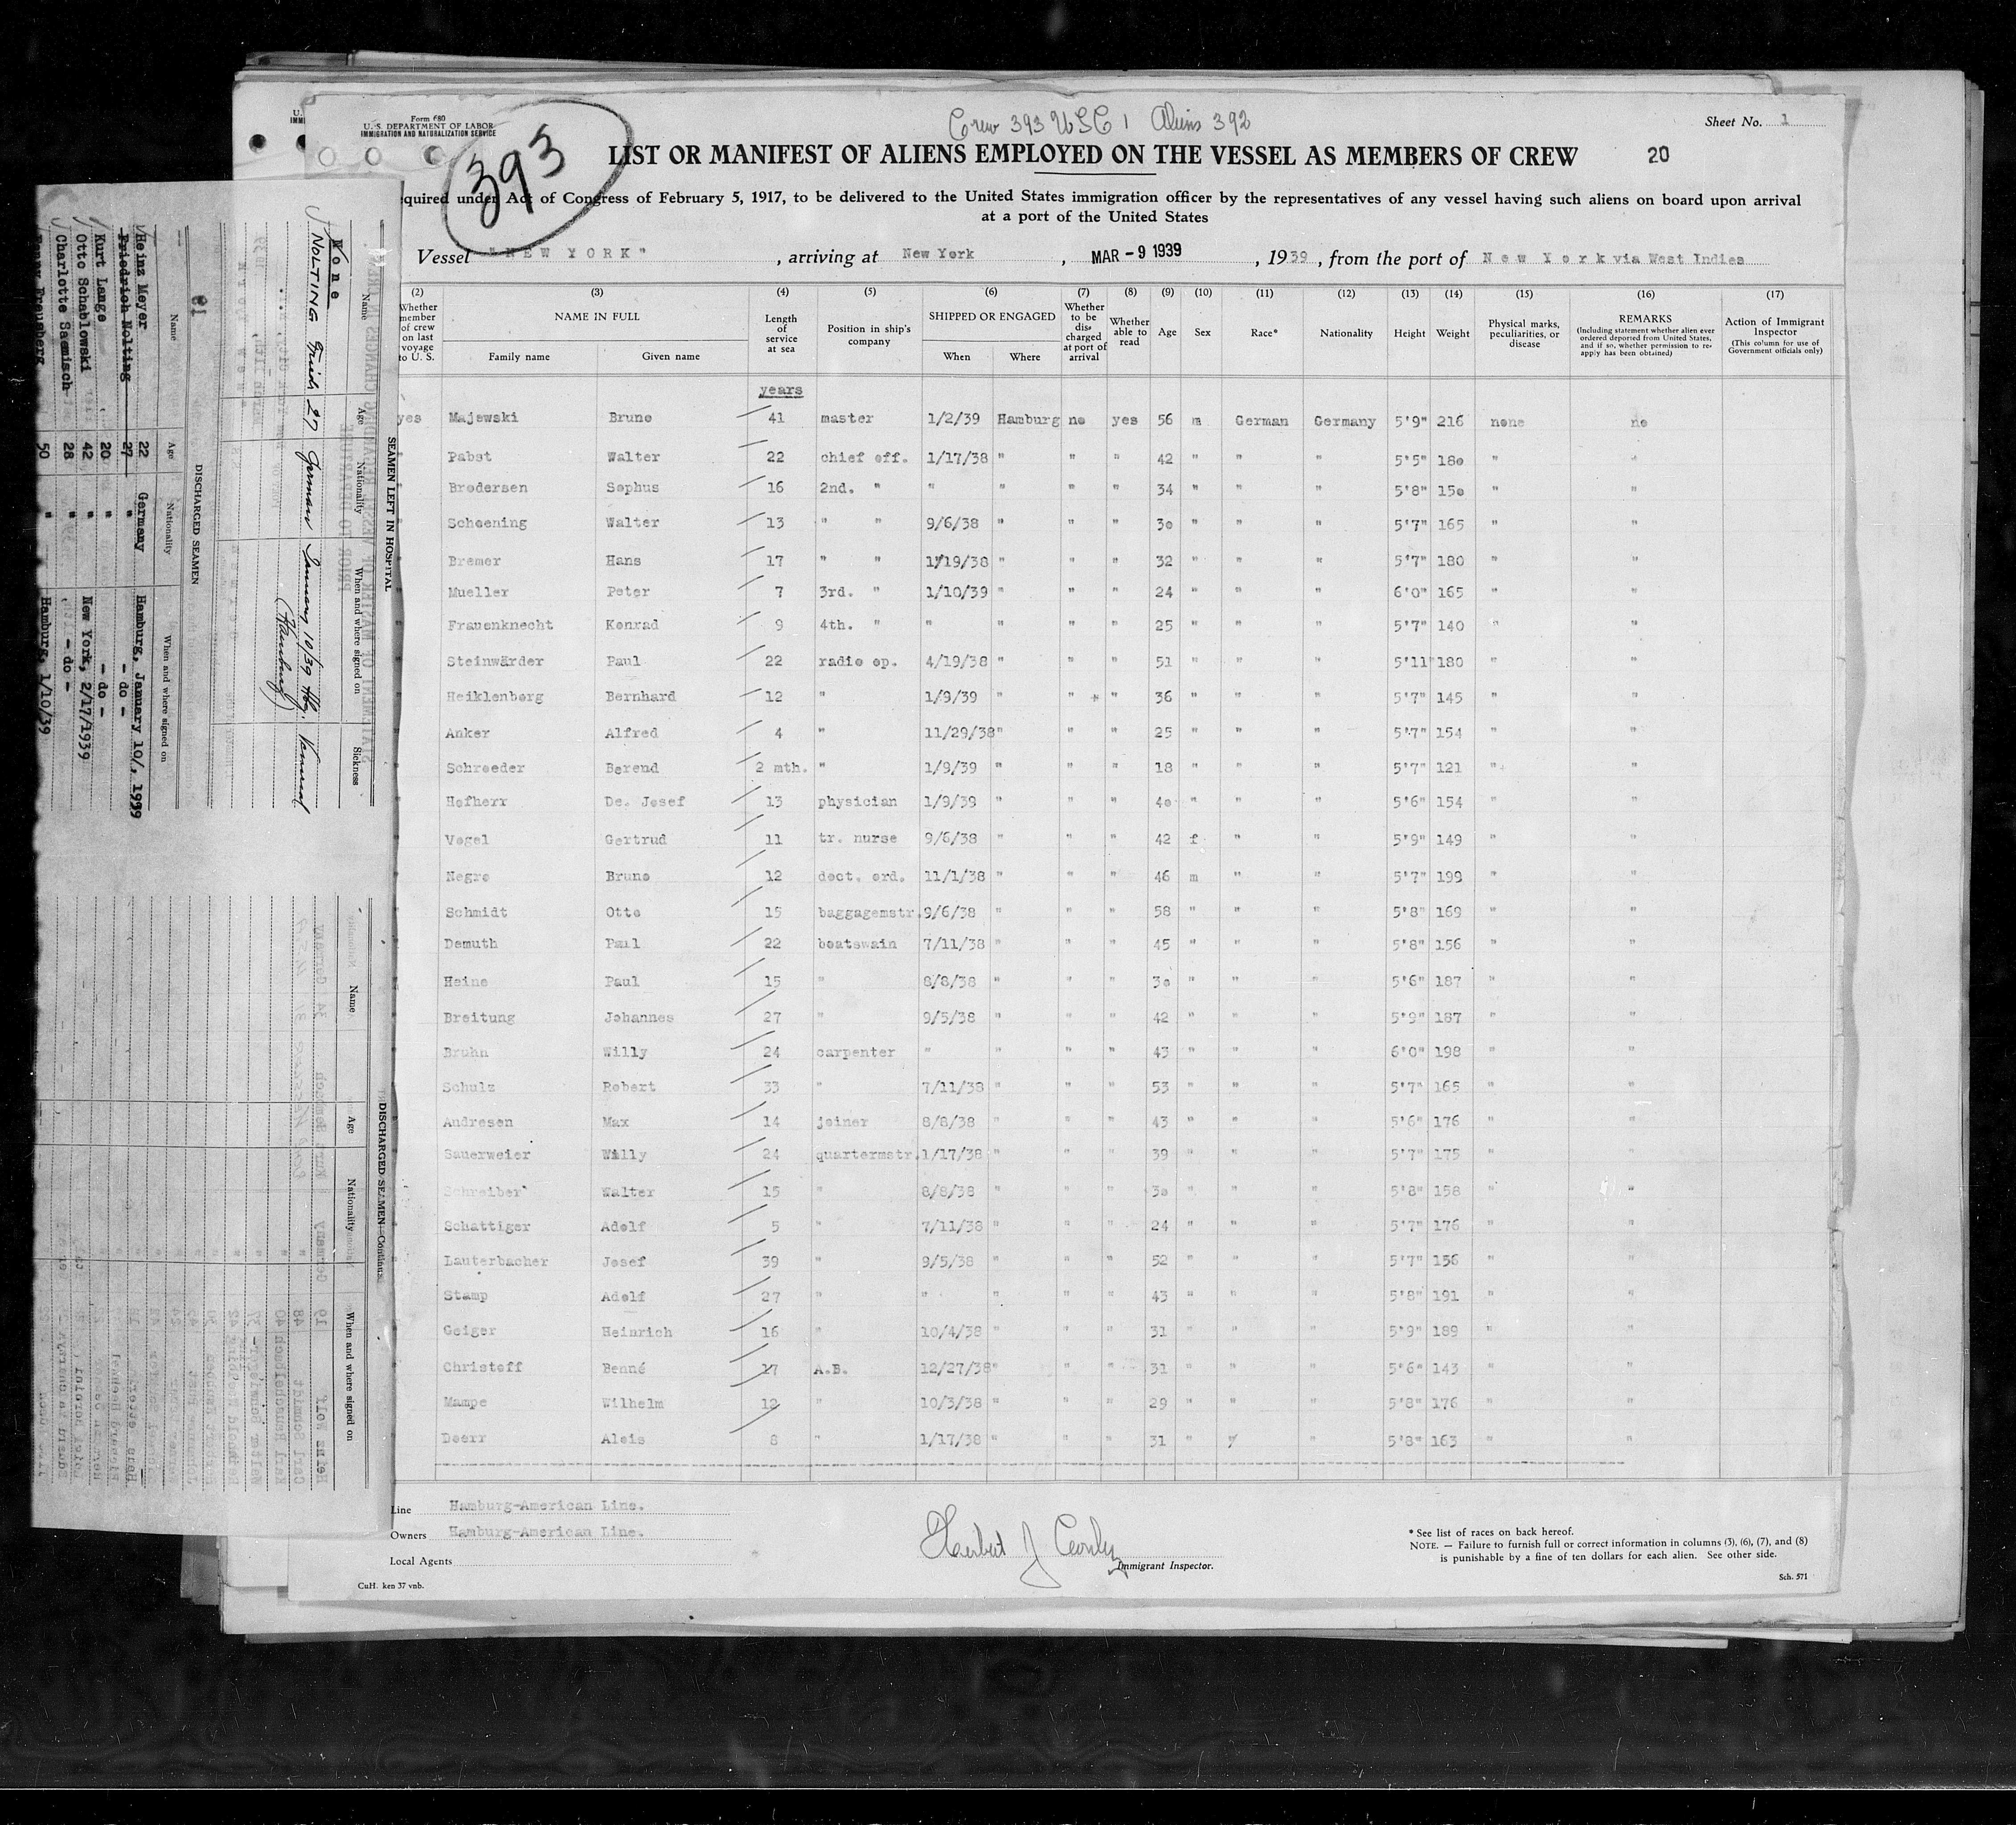 Form 680
U. S. DEPARTMENT OF LABOR
IMMIGRATION AND NATURALIZATION SERVICE
393
Crew 393 USC 1 Aliens 392
Sheet No. 1
LIST OR MANIFEST OF ALIENS EMPLOYED ON THE VESSEL AS MEMBERS OF CREW
20
quired under Act of Congress of February 5, 1917, to be delivered to the United States immigration officer by the representatives of any vessel having such aliens on board upon arrival
at a port of the United States
Vessel "NEW YORK", arriving at New York, MAR - 9 1939, 1939, from the port of New York via West Indies
(2) (3) (4) (5) (6) (7) (8) (9) (10) (11) (12) (13) (14) (15) (16) (17)
Whether member of crew on last voyage to U. S.
NAME IN FULL
Family name Given name
Length of service at sea
Position in ship's company
SHIPPED OR ENGAGED
When Where
Whether to be discharged at port of arrival
Whether able to read
Age
Sex
Race*
Nationality
Height
Weight
Physical marks, peculiarities, or disease
REMARKS
(Including statement whether alien ever ordered deported from United States, and if so, whether permission to reapply has been obtained)
Action of Immigrant Inspector
(This column for use of Government officials only)
years
yes Majewski Bruno 41 master 1/2/39 Hamburg no yes 56 m German Germany 5'9" 216 none no
Pabst Walter 22 chief off. 1/17/38 " " " 42 " " " 5'5" 180 " "
Brodersen Sophus 16 2nd. " " " " " 34 " " " 5'8" 150 " "
Schoening Walter 13 " " 9/6/38 " " " 30 " " " 5'7" 165 " "
Bremer Hans 17 " " 1/19/38 " " " 32 " " " 5'7" 180 " "
Mueller Peter 7 3rd. " 1/10/39 " " " 24 " " " 6'0" 165 " "
Frauenknecht Konrad 9 4th. " " " " " 25 " " " 5'7" 140 " "
Steinwärder Paul 22 radio op. 4/19/38 " " " 51 " " " 5'11" 180 " "
Heiklenborg Bernhard 12 " 1/9/39 " " " 36 " " " 5'7" 145 " "
Anker Alfred 4 " 11/29/38 " " " 25 " " " 5'7" 154 " "
Schroeder Berend 2 mth. " 1/9/39 " " " 18 " " " 5'7" 121 " "
Hofherr De. Josef 13 physician 1/9/39 " " " 40 " " " 5'6" 154 " "
Vogel Gertrud 11 tr. nurse 9/6/38 " " " 42 f " " 5'9" 149 " "
Negro Bruno 12 doct. ord. 11/1/38 " " " 46 m " " 5'7" 199 " "
Schmidt Otto 15 baggagemstr. 9/6/38 " " " 58 " " " 5'8" 169 " "
Demuth Paul 22 boatswain 7/11/38 " " " 45 " " " 5'8" 156 " "
Heine Paul 15 " 8/8/38 " " " 30 " " " 5'6" 187 " "
Breitung Johannes 27 " 9/5/38 " " " 42 " " " 5'9" 187 " "
Bruhn Willy 24 carpenter " " " " 43 " " " 6'0" 198 " "
Schulz Robert 33 " 7/11/38 " " " 53 " " " 5'7" 165 " "
Andresen Max 14 joiner 8/8/38 " " " 43 " " " 5'6" 176 " "
Sauerweier Willy 24 quartermstr. 1/17/38 " " " 39 " " " 5'7" 175 " "
Schreiber Walter 15 " 8/8/38 " " " 30 " " " 5'8" 158 " "
Schattiger Adolf 5 " 7/11/38 " " " 24 " " " 5'7" 176 " "
Lauterbacher Josef 39 " 9/5/38 " " " 52 " " " 5'7" 156 " "
Stamp Adolf 27 " " " " " 43 " " " 5'8" 191 " "
Geiger Heinrich 16 " 10/4/38 " " " 31 " " " 5'9" 189 " "
Christoff Benné 17 A.B. 12/27/38 " " " 31 " " " 5'6" 143 " "
Mampe Wilhelm 12 " 10/3/38 " " " 29 " " " 5'8" 176 " "
Doerr Alois 8 " 1/17/38 " " " 31 " " " 5'8" 163 " "
Line Hamburg-American Line.
Owners Hamburg-American Line.
Local Agents
CuH. ken 37 vnb.
Herbert J
Immigrant Inspector.
* See list of races on back hereof.
NOTE. — Failure to furnish full or correct information in columns (3), (6), (7), and (8)
is punishable by a fine of ten dollars for each alien. See other side.
Sch. 571
SEAMEN LEFT IN HOSPITAL
Name Age Nationality When and where signed on Sickness
None
NOLTING Friedr. 27 German January 10/39 Hbg. Venereal
(Hamburg)
DISCHARGED SEAMEN
Name Age Nationality When and where signed on
Heinz Meyer 22 Germany Hamburg, January 10/, 1939
Friedrich Nolting 27 " - do -
Kurt Lange 20 " - do -
Otto Schablowski 42 " New York, 2/17/1939
Charlotte Saemisch 28 " - do -
Frausberg 50 " Hamburg, 1/10/39
DISCHARGED SEAMEN—Continued
Name Age Nationality When and where signed on